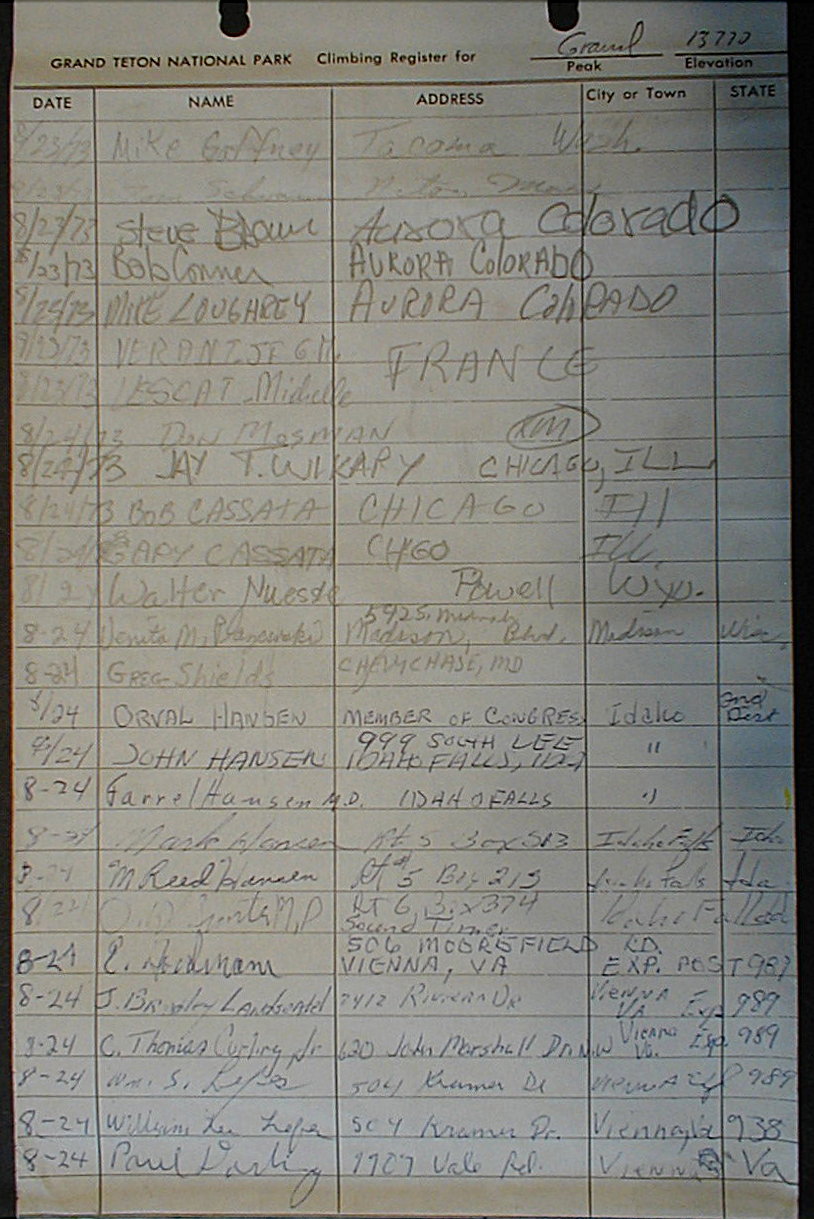 GRAND TETON NATIONAL PARK Climbing Register for Grand 13770
Peak Elevation
DATE NAME ADDRESS City or Town STATE
8/23/73 Mike Gaffney Tacoma Wash.
8/23/73 Steve Brown Aurora Colorado
8/23/73 Bob Conner AURORA COLORADO
8/23/73 MIKE LOUGHREY AURORA COLORADO
8/23/73 FRANCE
8/23/73 LESCAT Michelle
8/24/73 DON MOSMAN
8/24/73 JAY T. WIKARY CHICAGO, ILL
8/24/73 BOB CASSATA CHICAGO Ill
8/24/73 GARY CASSATA CHGO Ill.
8/24 Walter Nuesse Powell Wyo.
5925
8-24 M. Madison, Blvd. Madison Wis.
8-24 GREG Shields CHEVY CHASE, MD
8/24 ORVAL HANSEN MEMBER OF CONGRESS Idaho 2nd Dist
999 SOUTH LEE
8/24 JOHN HANSEN IDAHO FALLS, "
8-24 Farrel Hansen M.D. IDAHO FALLS "
8-24 Mark Hansen Rt 5 Box Idaho Falls Ida
8-24 "M Reed" Hansen Rt #5 Box 213 Idaho Falls Ida.
8/24 M.D RT 6, Box 374 Idaho Falls
Second Timer
506 MOOREFIELD RD.
8-24 E. VIENNA, VA EXP. POST 989
8-24 J. 2412 Riviera Dr Vienna VA Exp 989
8-24 C. Thomas Jr. 620 John Marshall Dr. NW Vienna Va. Exp. 989
8-24 Wm. S. 504 Kramer Dr Vienna 989
8-24 William Lee 504 Kramer Dr. Vienna, Va 938
8-24 Paul Vale Rd. Vienna Va